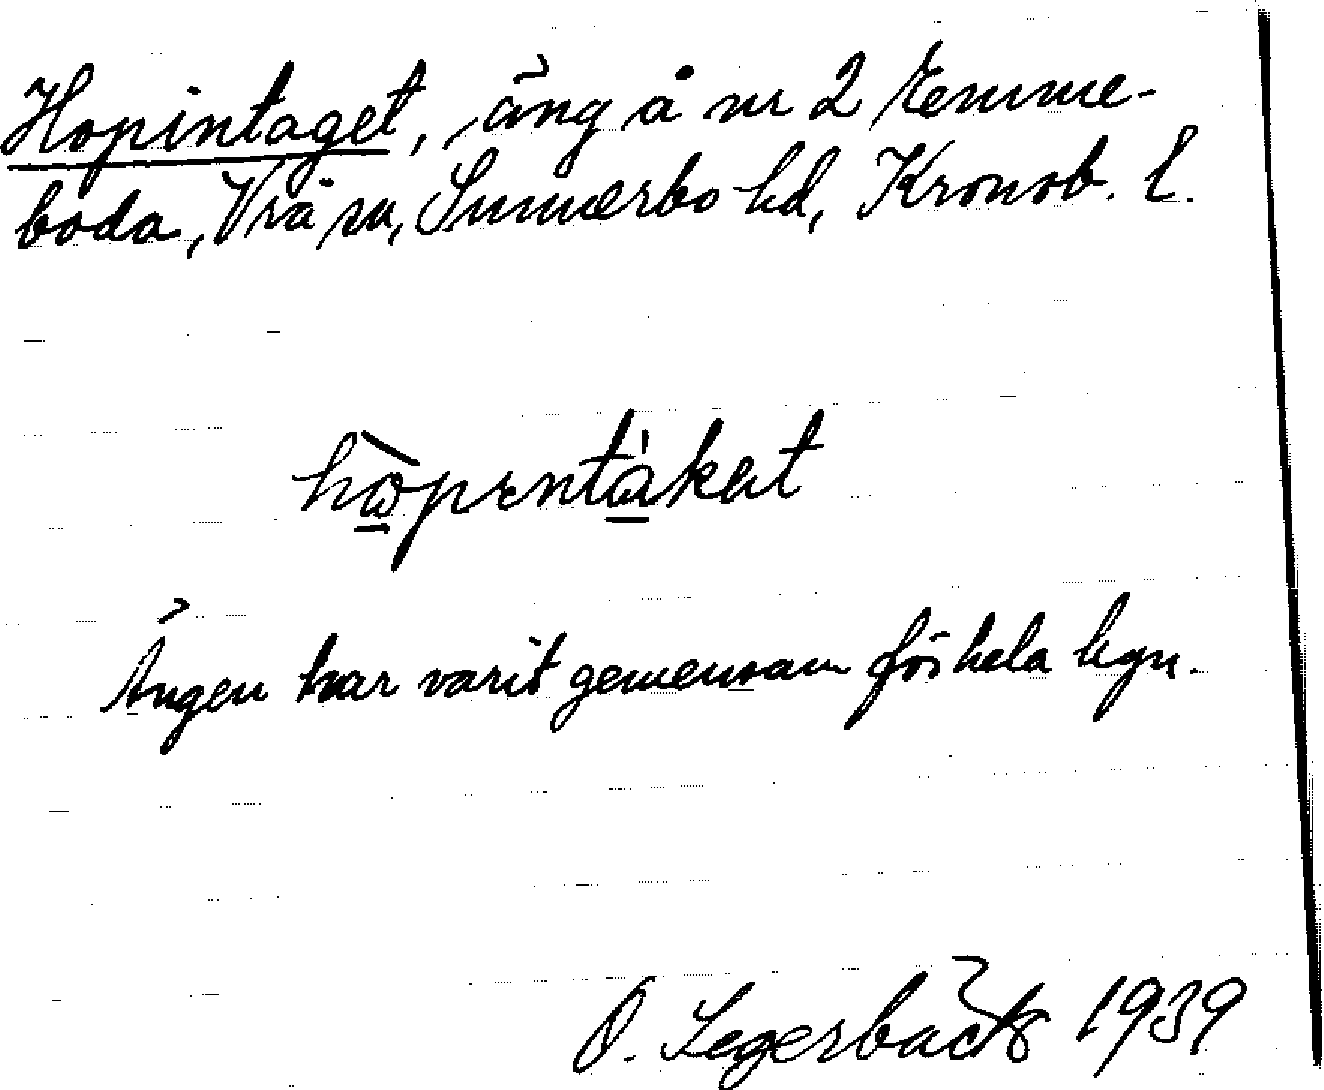 Hopintaget, äng å nr 2 Remme-
boda, Vrå sn, Sunnerbo hd, Kronob. l.
Ängen har varit gemensam för hela byn.
O. Segerbäck 1939